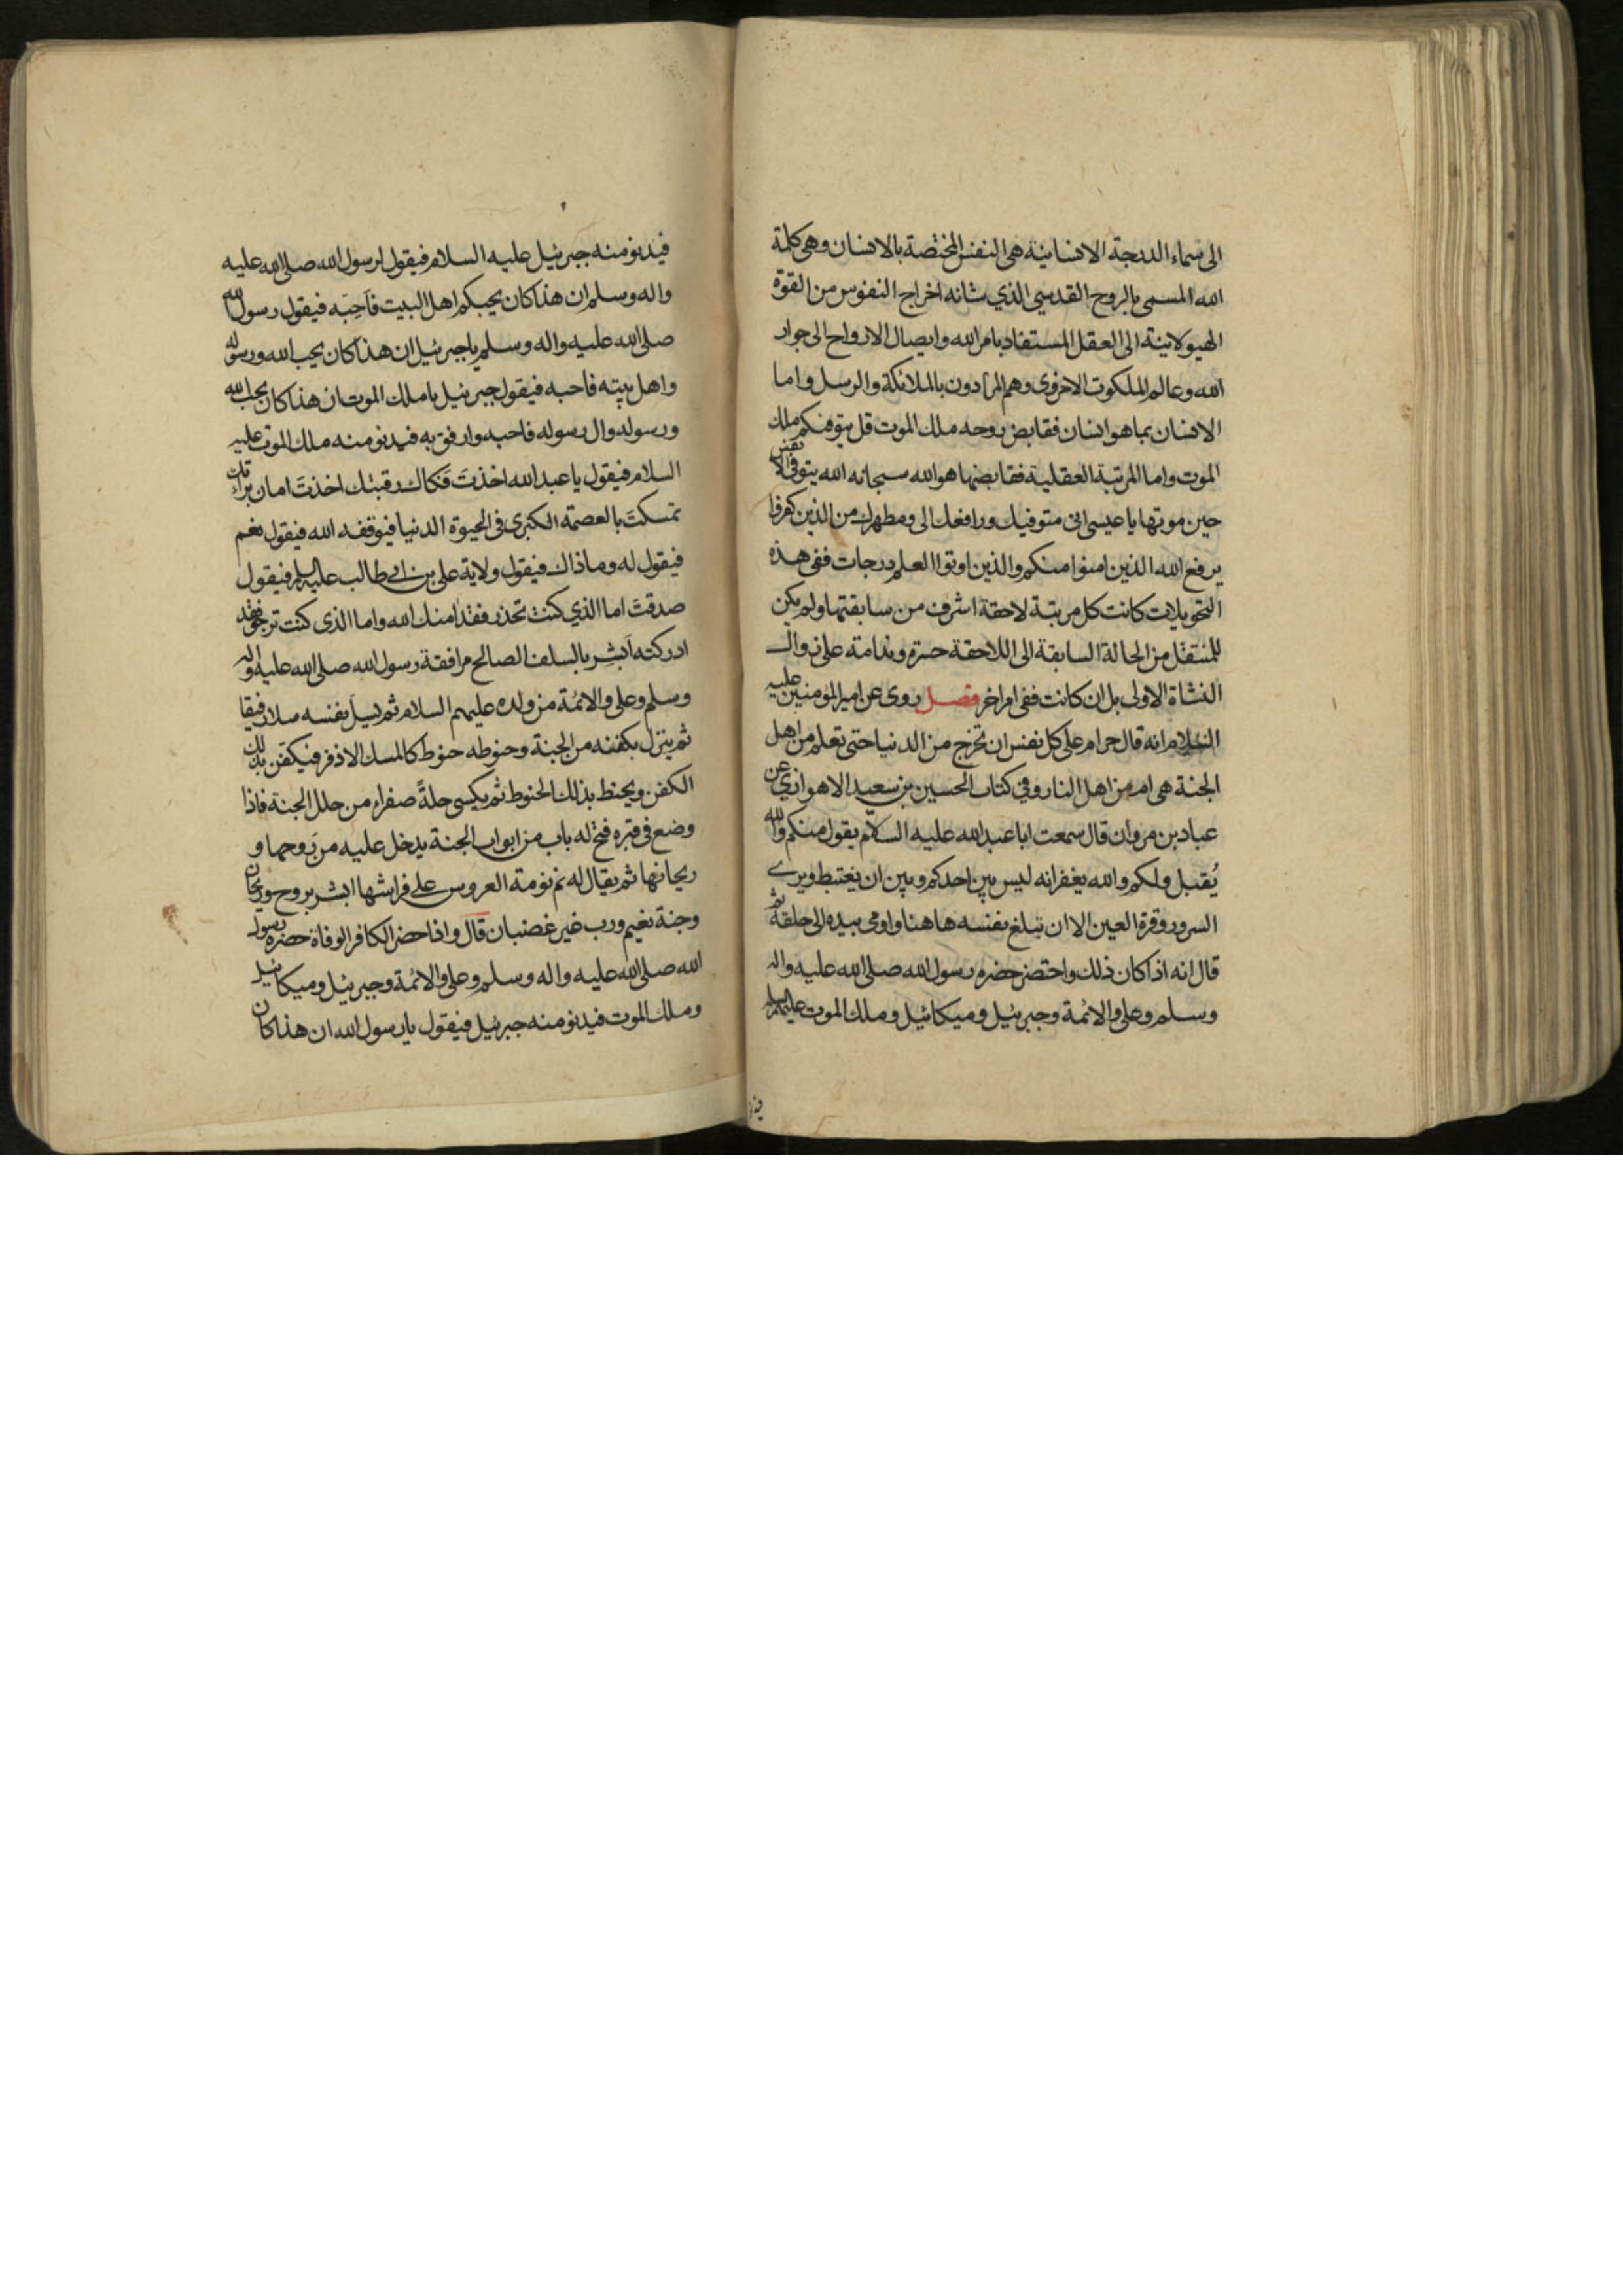 الى سماء الدرجة الانسانية هى النفس المختصة بالانسان وهى كلمة
الله المسمى بالروح القدسي الذي شانه اخراج النفوس من القوة
الهيولانية الى العقل المستفاد بامر الله وايصال الارواح الى جوار
الله وعالم الملكوت الاخروى وهم المرادون بالملائكة والرسل واما
الانسان بما هو انسان فقابض روحه ملك الموت قل يتوفكم ملك
الموت واما المرتبة العقلية فقابضها هو الله سبحانه الله يتوفى الانفس
حين موتها يا عيسى انى متوفيك ورافعك الى ومطهرك من الذين كفروا
يرفع الله الذين امنوا منكم والذين اوتوا العلم درجات ففى هذه
التحويلات كانت كل مرتبة لاحقة اشرف من سابقتها ولم يكن
للمنتقل من الحالة السابقة الى اللاحقة حسرة وندامة على زوال
النشاة الاولى بل ان كانت ففى امر اخر فصل روى عن امير المؤمنين عليه
السلام انه قال حرام على كل نفس ان تخرج من الدنيا حتى تعلم من اهل
الجنة هى ام من اهل النار وفي كتاب الحسين بن سعيد الاهوازي عن
عباد بن مروان قال سمعت ابا عبد الله عليه السلام يقول منكم والله
يُقبل ولكم والله يغفر انه ليس بين احدكم وبين ان يغتبط ويرى
السرور وقرة العين الا ان تبلغ نفسه هاهنا واومى بيده الى حلقه ثم
قال انه اذا كان ذلك واحتضر حضره رسول الله صلى الله عليه واله
وسلم وعلى والائمة وجبرئيل وميكائيل وملك الموت عليهم السلام
فيدنو منه جبرئيل عليه السلام فيقول لرسول الله صلى الله عليه
واله وسلم ان هذا كان يحبكم اهل البيت فَاَحِبَّه فيقول رسول الله
صلى الله عليه واله وسلم يا جبرئيل ان هذا كان يحب الله ورسوله
واهل بيته فاحبه فيقول جبرئيل يا ملك الموت ان هذا كان يحب الله
ورسوله وال رسوله فاحبه وارفق به فيدنو منه ملك الموت عليه
السلام فيقول يا عبد الله اخذتَ فَكاك رقبتك اخذتَ امان براءتك
تمسكتَ بالعصمة الكبرى فى الحيوة الدنيا فيوقفه الله فيقول نعم
فيقول له وما ذاك فيقول ولاية على بن ابي طالب عليه السلم فيقول
صدقتَ اما الذي كنت تحذر فقد امنك الله واما الذى كنت ترجو فقد
ادركته اَبشِر بالسلف الصالح مرافقة رسول الله صلى الله عليه واله
وسلم وعلى والائمة من ولده عليهم السلام ثم يسلّ نفسه سلا رفيقا
ثم ينزل بكفنه من الجنة وحنوطه حنوط كالمسك الاذفر فيكفن بذلك
الكفن ويحنط بذلك الحنوط ثم يكسى حلةً صفراء من حلل الجنة فاذا
وضع فى قبره فتح له باب من ابواب الجنة يدخل عليه من رَوحها و
ريحانها ثم يقال له نم نومة العروس على فراشها ابشر بروح وريحان
وجنة نعيم ورب غير غضبان قال واذا حضر الكافر الوفاة حضره رسول
الله صلى الله عليه واله وسلم وعلى والائمة وجبرئيل وميكائيل
وملك الموت فيدنو منه جبرئيل فيقول يا رسول الله ان هذا كان